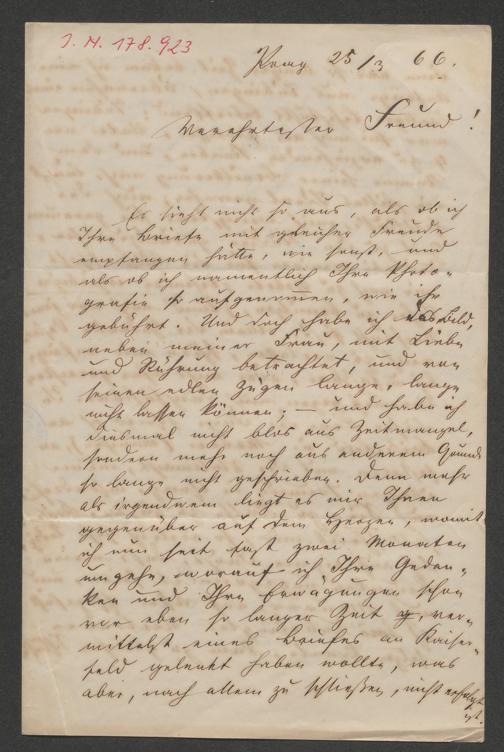 J. N. 178.923
Prag 25/3 66.
Verehrtester Freund!
Es sieht nicht so aus, als ob ich
Ihre Briefe mit gleicher Freude
empfangen hätte, wie sonst, und
als ob ich namentlich Ihre Photo-
grafie so aufgenommen, wie ihr
gebührt. Und doch habe ich das Bild,
neben meiner Frau, mit Liebe
und Rührung betrachtet, und von
seinen edlen Zügen lange, lange
nicht lassen können; — und habe ich
diesmal nicht blos aus Zeitmangel,
sondern mehr noch aus anderem Grunde
so lange nicht geschrieben. Denn mehr
als irgendwem liegt es mir Ihnen
gegenüber auf dem Herzen, womit
ich nun seit fast zwei Monaten
umgehe, worauf ich Ihre Gedan-
ken und Ihre Erwägungen schon
vor eben so langer Zeit ver-
mittelst eines Briefes an Kaiser-
feld gelenkt haben wollte, was
aber, nach allem zu schließen, nicht erfolgt
ist.